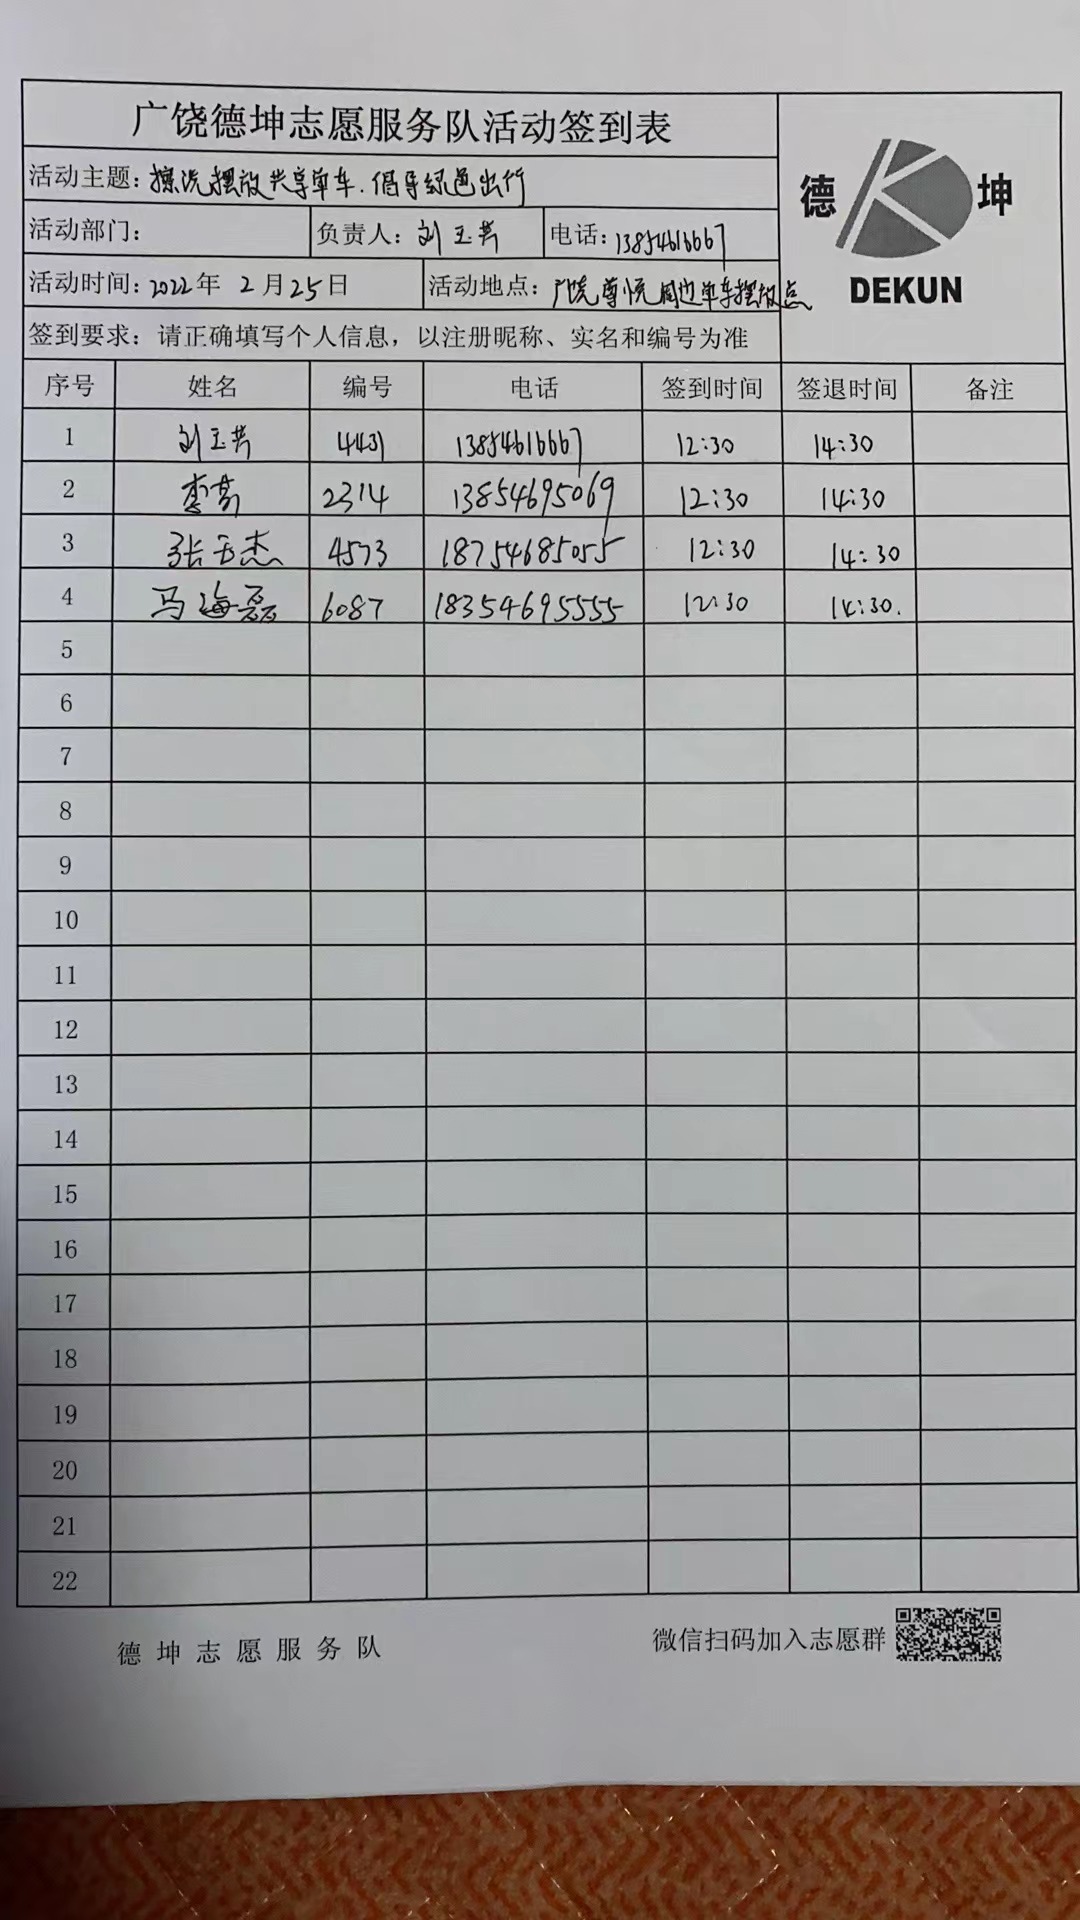 广饶德坤志愿服务队活动签到表
德 坤
DEKUN
活动主题：擦洗摆放共享单车.倡导绿色出行
活动部门： 负责人：刘玉芳 电话：13854616667
活动时间：2022年 2月25日 活动地点：广饶尊悦周边单车摆放点
签到要求：请正确填写个人信息，以注册昵称、实名和编号为准
序号 姓名 编号 电话 签到时间 签退时间 备注
1 刘玉芳 4431 13854616667 12:30 14:30
2 李 2314 13854695069 12:30 14:30
3 张玉杰 4573 18754685055 12:30 14:30
4 马海磊 6087 18354695555 12:30 14:30.
5
6
7
8
9
10
11
12
13
14
15
16
17
18
19
20
21
22
德坤志愿服务队 微信扫码加入志愿群